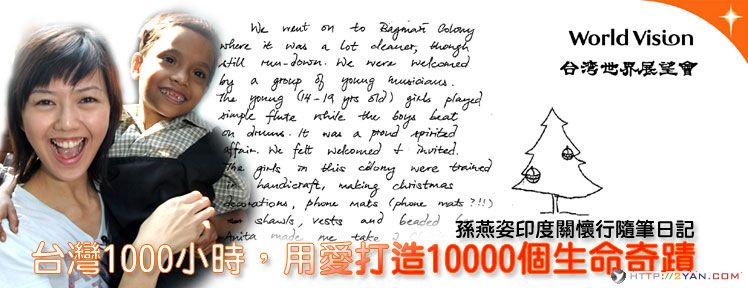 We went on to Bagmari Colony
where it was a lot cleaner, though
still run-down. We were welcomed
by a group of young musicians.
The young (14-19 yrs old) girls played
simple flute while the boys beat
on drums. It was a proud spirited
affair. We felt welcomed & invited.
The girls in this colony were trained
in handicraft, making christmas
decorations, phone mats (phone mats ?!!)
shawls, vests and beaded
Anita made me take
World Vision
台湾世界展望會
孫燕姿印度關懷行隨筆日記
台灣1000小時，用愛打造10000個生命奇蹟
HTTP://2YAN.COM